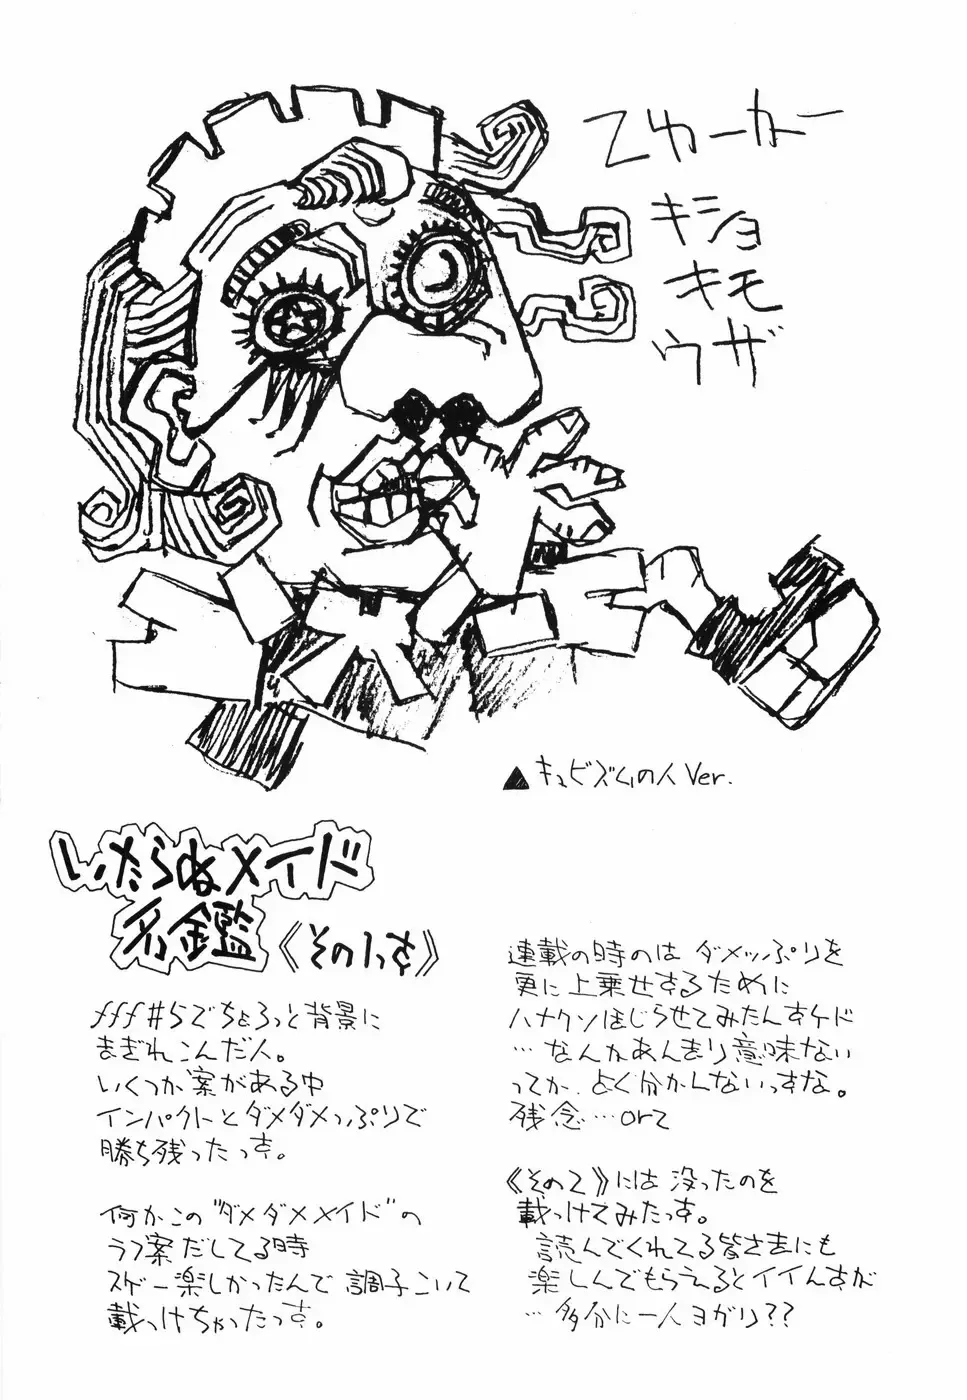 キショ
キモ
ウザ
▲キュビズムの人Ver.
いたらぬメイド
名鑑《その1っす》
fff#5でちょろっと背景に
まぎれこんだ人。
いくつか案がある中
インパクトとダメダメっぷりで
勝ち残ったっす。
何かこの"ダメダメメイド"の
ラフ案だしてる時
スゲー楽しかったんで調子こいて
載っけちゃったっす。
連載の時のはダメッぷりを
更に上乗せするために
ハナクソほじらせてみたんすケド
…なんかあんまり意味ない
ってか、よく分かんないっすな。
残念…orz
《その2》には没ったのを
載っけてみたっす。
読んでくれてる皆さまにも
楽しんでもらえるとイイんすが
…多分に一人ヨガリ??